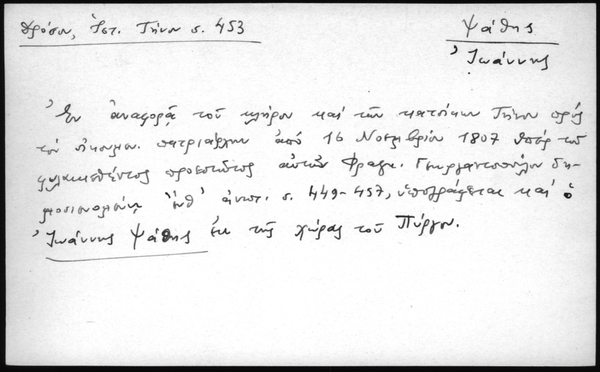 Δρόσου, Ἱστ. Τήνου σ. 453
Ψάθης
Ἰωάννης
Ἐν ἀναφορᾷ τοῦ κλήρου καὶ τῶν κατοίκων Τήνου πρὸς
τὸν οἰκουμ. πατριάρχην ἀπὸ 16 Νοεμβρίου 1807 ὑπὲρ τοῦ
φυλακισθέντος προεστῶτος αὐτῶν Φραγκ. Γεωργαντοπούλου δη-
μοσιευομένῃ ἀνωτ. σ. 449-457, ὑπογράφεται καὶ ὁ
Ἰωάννης Ψάθης ἐκ τῆς χώρας τοῦ Πύργου.